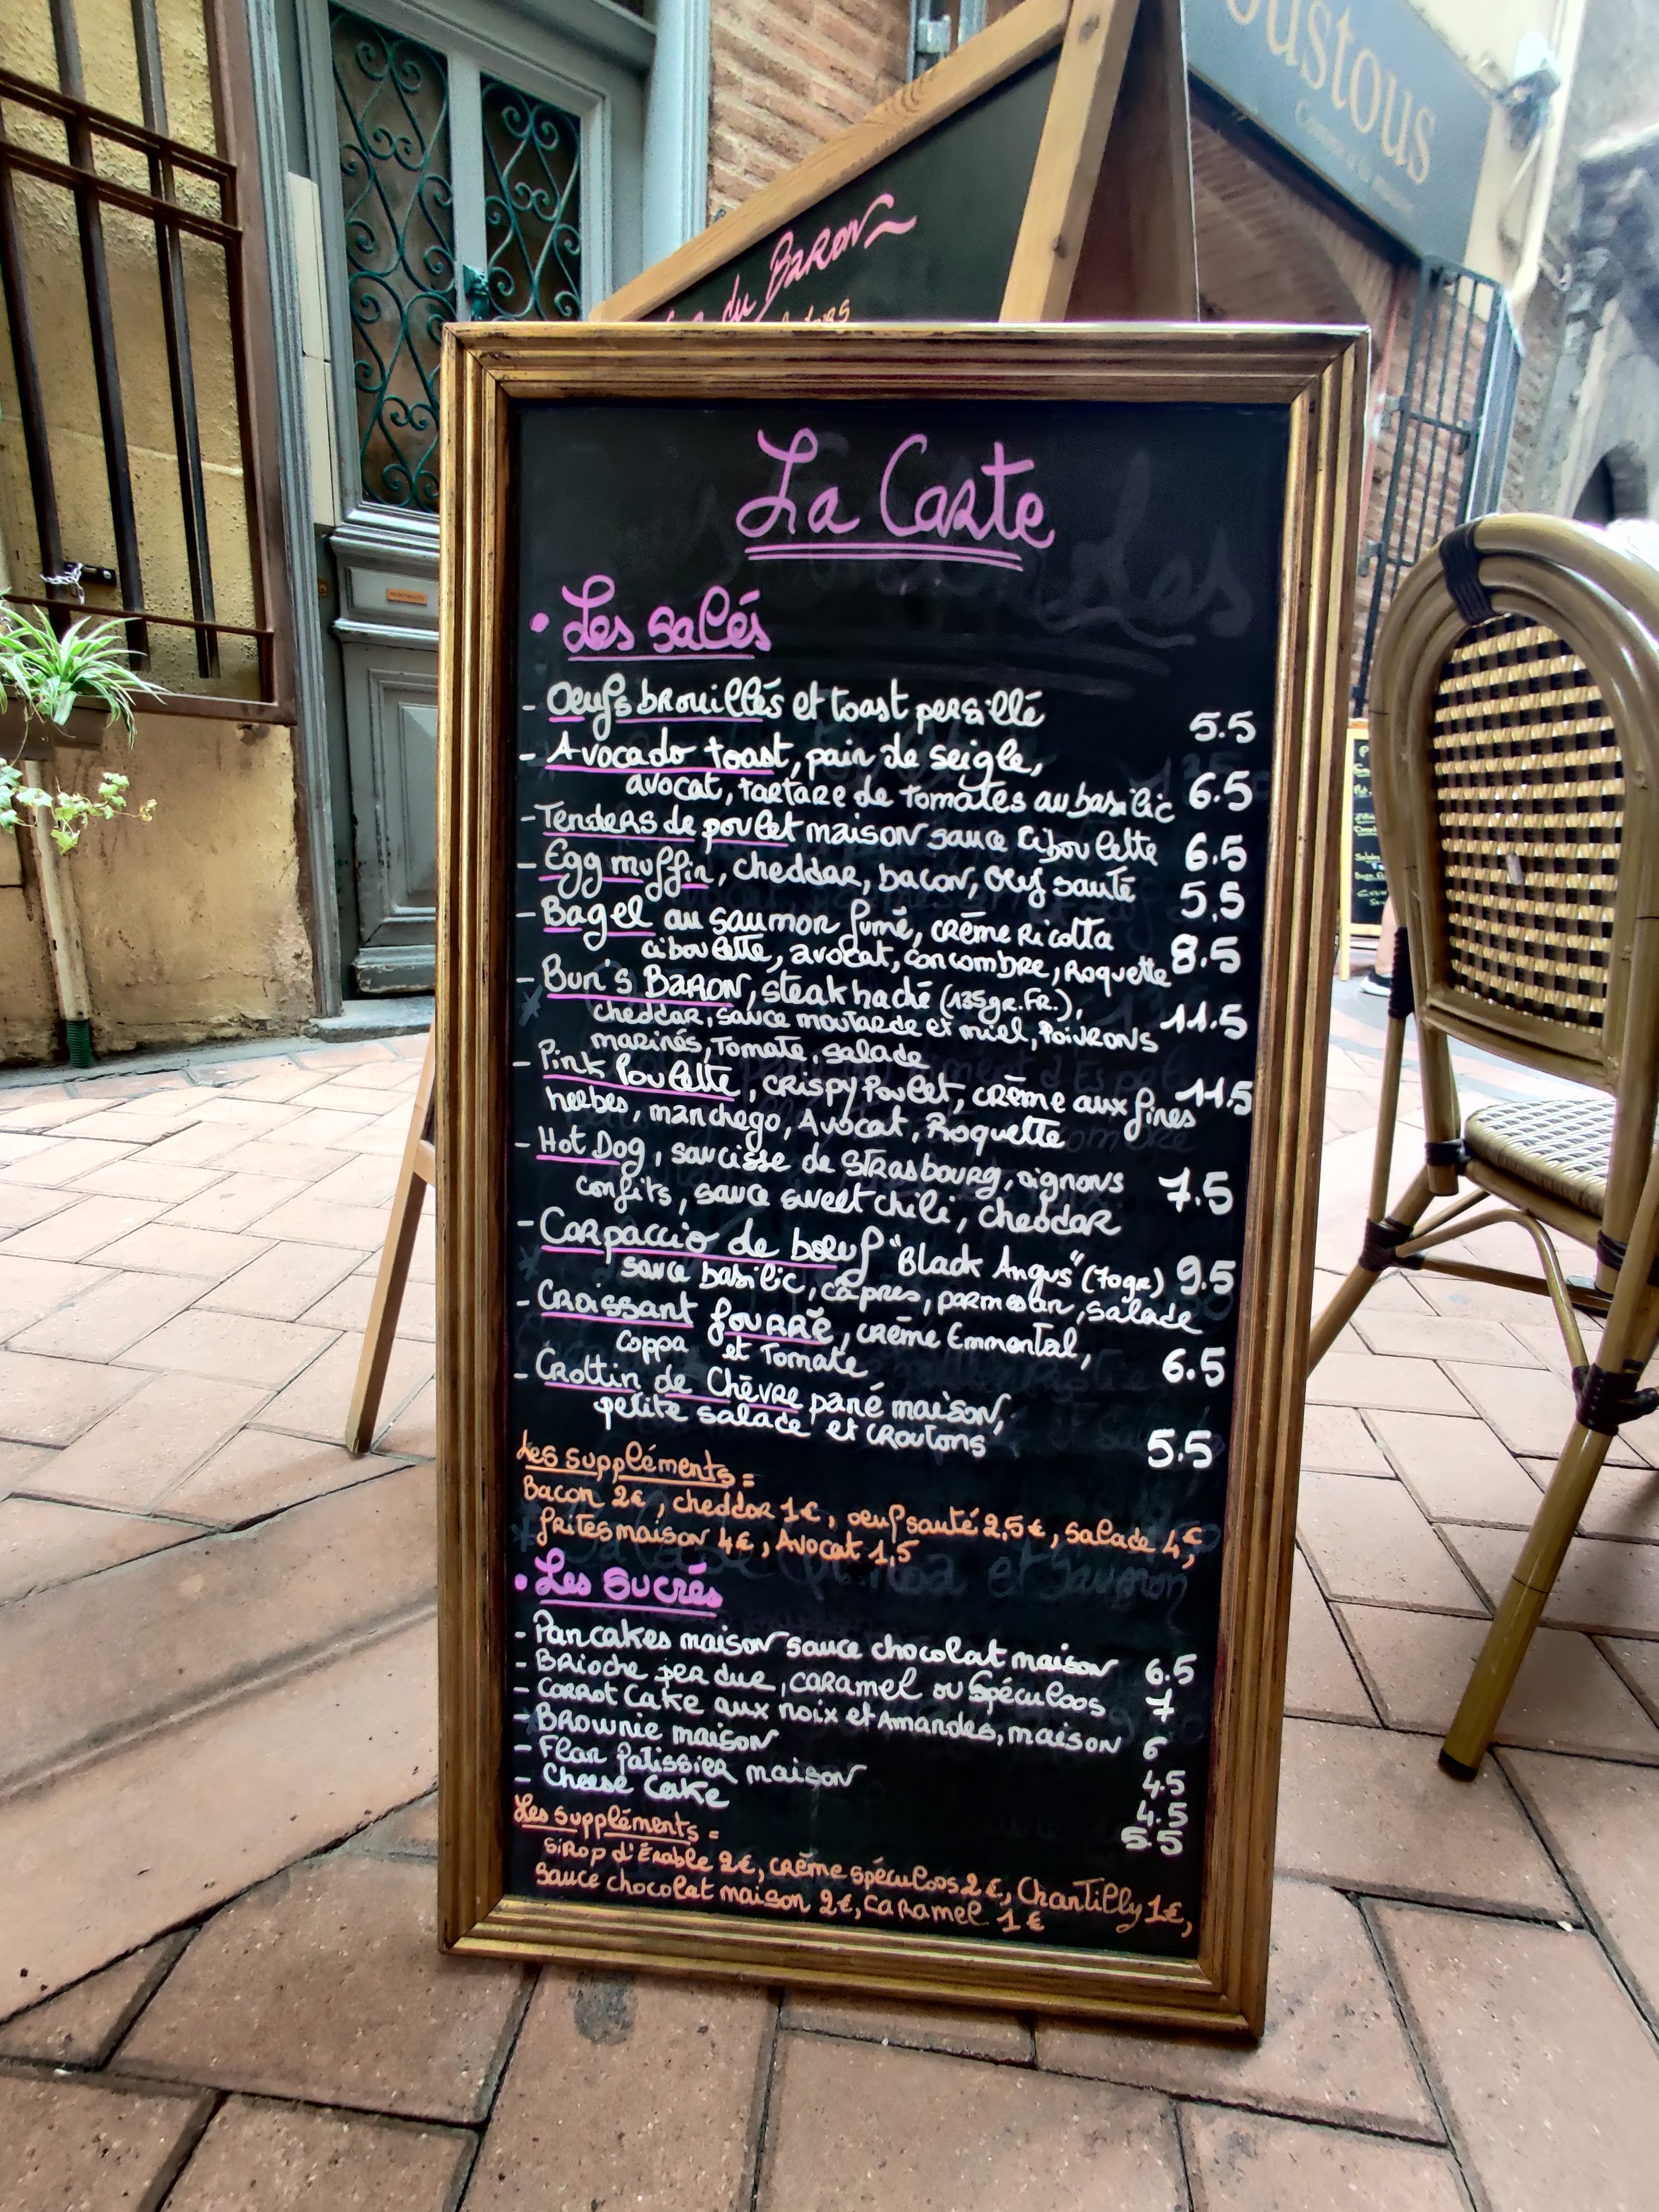 oustous
du Baron
La Carte
• Les salés
- Oeufs brouillés et toast persillé 5.5
- Avocado toast, pain de seigle,
avocat, tartare de tomates au basilic 6.5
- Tenders de poulet maison sauce ciboulette 6.5
- Egg muffin, cheddar, bacon, oeuf sauté 5,5
- Bagel au saumon fumé, crème Ricotta
ciboulette, avocat, concombre, Roquette 8.5
- Bun's Baron, steak haché (135gr.FR.),
cheddar, sauce moutarde et miel, Poivrons 11.5
marinés, Tomate, salade
- Pink Poulette, crispy Poulet, crème aux fines 11.5
herbes, manchego, Avocat, Roquette
- Hot Dog, saucisse de Strasbourg, oignons
confits, sauce sweet chili, Cheddar 7.5
- Carpaccio de boeuf "Black Angus" (70gr) 9.5
sauce basilic, câpres, parmesan, salade
- Croissant fourré, crème Emmental,
coppa et Tomate 6.5
- Crottin de Chèvre pané maison,
petite salade et croutons 5.5
Les suppléments =
Bacon 2€, cheddar 1€, oeuf sauté 2,5€, salade 4€,
frites maison 4€, Avocat 1,5
• Les Sucrés
- Pancakes maison sauce chocolat maison 6.5
- Brioche perdue, caramel ou Spéculoos 7
- Carrot Cake aux noix et Amandes, maison 6
- Brownie maison 4.5
- Flan Patissier maison 4.5
- Cheese Cake 5.5
Les suppléments =
sirop d'Érable 2€, crème spéculoos 2€, Chantilly 1€,
sauce chocolat maison 2€, Caramel 1€